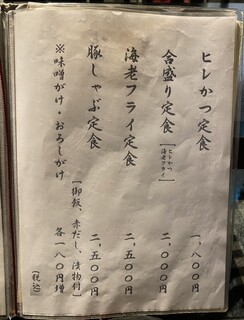 ヒレかつ定食 一、八〇〇円
合盛り定食 [ヒレかつ 海老フライ] 二、〇〇〇円
海老フライ定食 二、五〇〇円
豚しゃぶ定食 二、五〇〇円
[御飯、赤だし、漬物付]
※味噌がけ・おろしがけ 各一八〇円増
(税込)